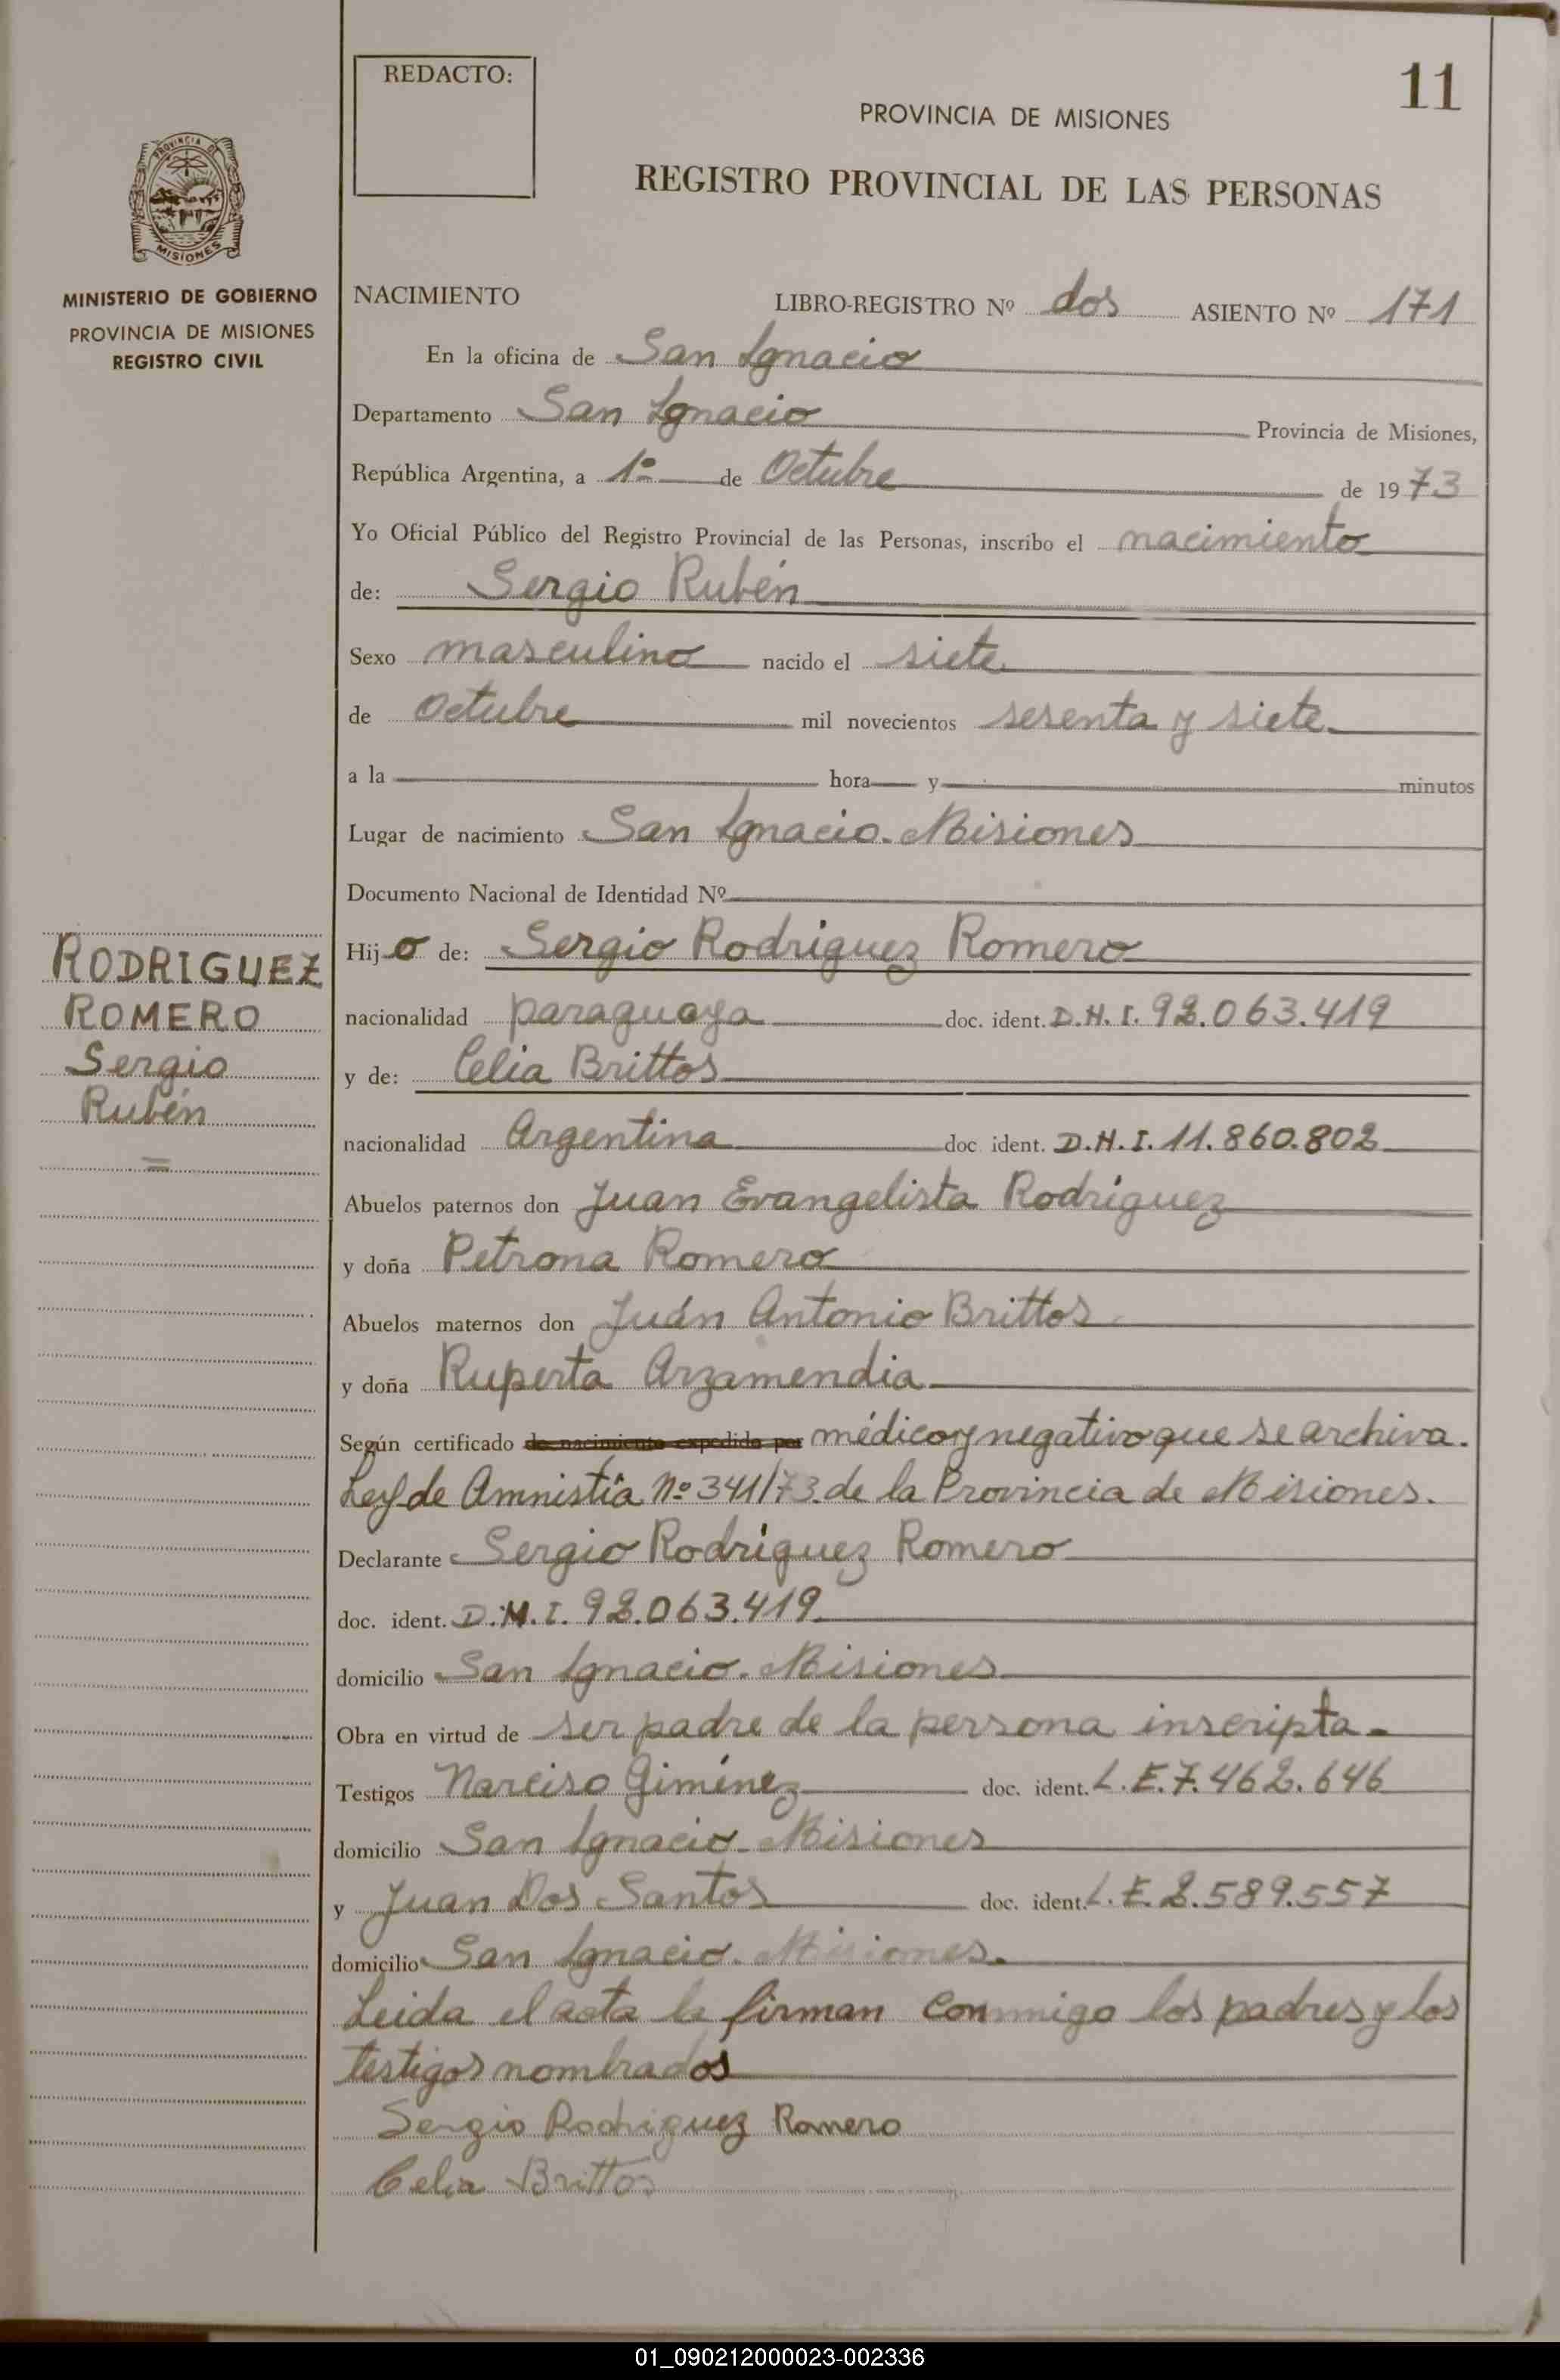 REDACTO:
11
PROVINCIA DE MISIONES
REGISTRO PROVINCIAL DE LAS PERSONAS
PROVINCIA DE
MISIONES
MINISTERIO DE GOBIERNO
PROVINCIA DE MISIONES
REGISTRO CIVIL
NACIMIENTO LIBRO-REGISTRO Nº dos ASIENTO Nº 171
En la oficina de San Ignacio
Departamento San Ignacio Provincia de Misiones,
República Argentina, a 1º de Octubre de 1973
Yo Oficial Público del Registro Provincial de las Personas, inscribo el nacimiento
de: Sergio Rubén
Sexo masculino nacido el siete
de Octubre mil novecientos sesenta y siete
a la hora y minutos
Lugar de nacimiento San Ignacio. Misiones
Documento Nacional de Identidad Nº
RODRIGUEZ
ROMERO
Sergio
Rubén
=
Hijo de: Sergio Rodríguez Romero
nacionalidad paraguaya doc. ident. D.N.I. 92.063.419
y de: Celia Brittos
nacionalidad Argentina doc ident. D.N.I. 11.860.802
Abuelos paternos don Juan Evangelista Rodríguez
y doña Petrona Romero
Abuelos maternos don Juán Antonio Brittos
y doña Ruperta Arzamendia
Según certificado de nacimiento expedido por médico y negativo que se archiva.
Ley de Amnistía Nº 341/73. de la Provincia de Misiones.
Declarante Sergio Rodríguez Romero
doc. ident. D.N.I. 92.063.419
domicilio San Ignacio. Misiones
Obra en virtud de ser padre de la persona inscripta.
Testigos Narciso Giménez doc. ident. L.E. 7.462.646
domicilio San Ignacio. Misiones
y Juan Dos Santos doc. ident. L.E. 2.589.557
domicilio San Ignacio. Misiones.
Leida el acta la firman conmmigo los padres y los
testigos nombrados
Sergio Rodriguez Romero
Celia Brittos
01_090212000023-002336